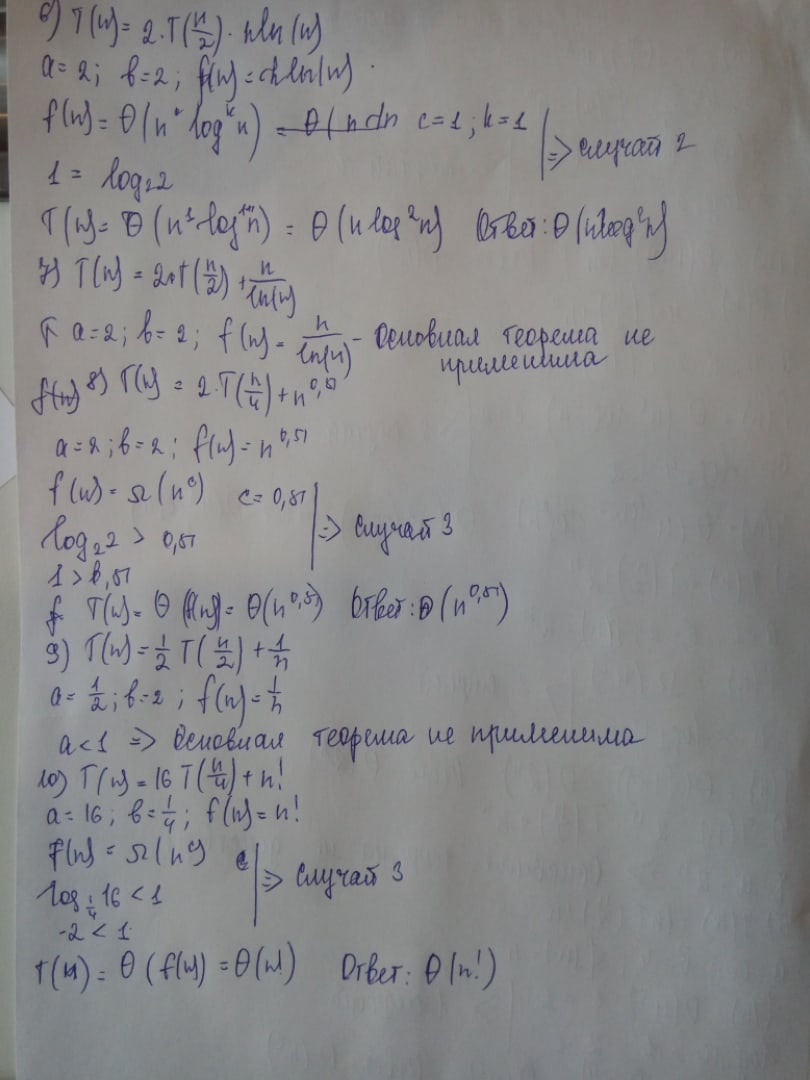 6) T(n) = 2·T(n/2) · n ln(n)
a = 2; b = 2; f(n) = n ln(n).
f(n) = Θ(n^c log^k n) = c = 1; k = 1
1 = log₂2 => случай 2
T(n) = Θ(n¹ log¹⁺¹ n) = Θ(n log²n) Ответ: Θ(n log²n)
7) T(n) = 2·T(n/2) + n/ln(n)
a = 2; b = 2; f(n) = n/ln(n) - Основная теорема не
применима
8) T(n) = 2·T(n/4) + n^0,51
a = 2; b = 2; f(n) = n^0,51
f(n) = Ω(n^c) c = 0,51
log₂2 > 0,51 => случай 3
1 > 0,51
T(n) = Θ(f(n)) = Θ(n^0,51) Ответ: Θ(n^0,51)
9) T(n) = 1/2 T(n/2) + 1/n
a = 1/2; b = 2; f(n) = 1/n
a < 1 => Основная теорема не применима
10) T(n) = 16 T(n/4) + n!
a = 16; b = 1/4; f(n) = n!
f(n) = Ω(n^c)
log_1/4 16 < 1 => случай 3
-2 < 1
T(n) = Θ(f(n) = Θ(n!) Ответ: Θ(n!)